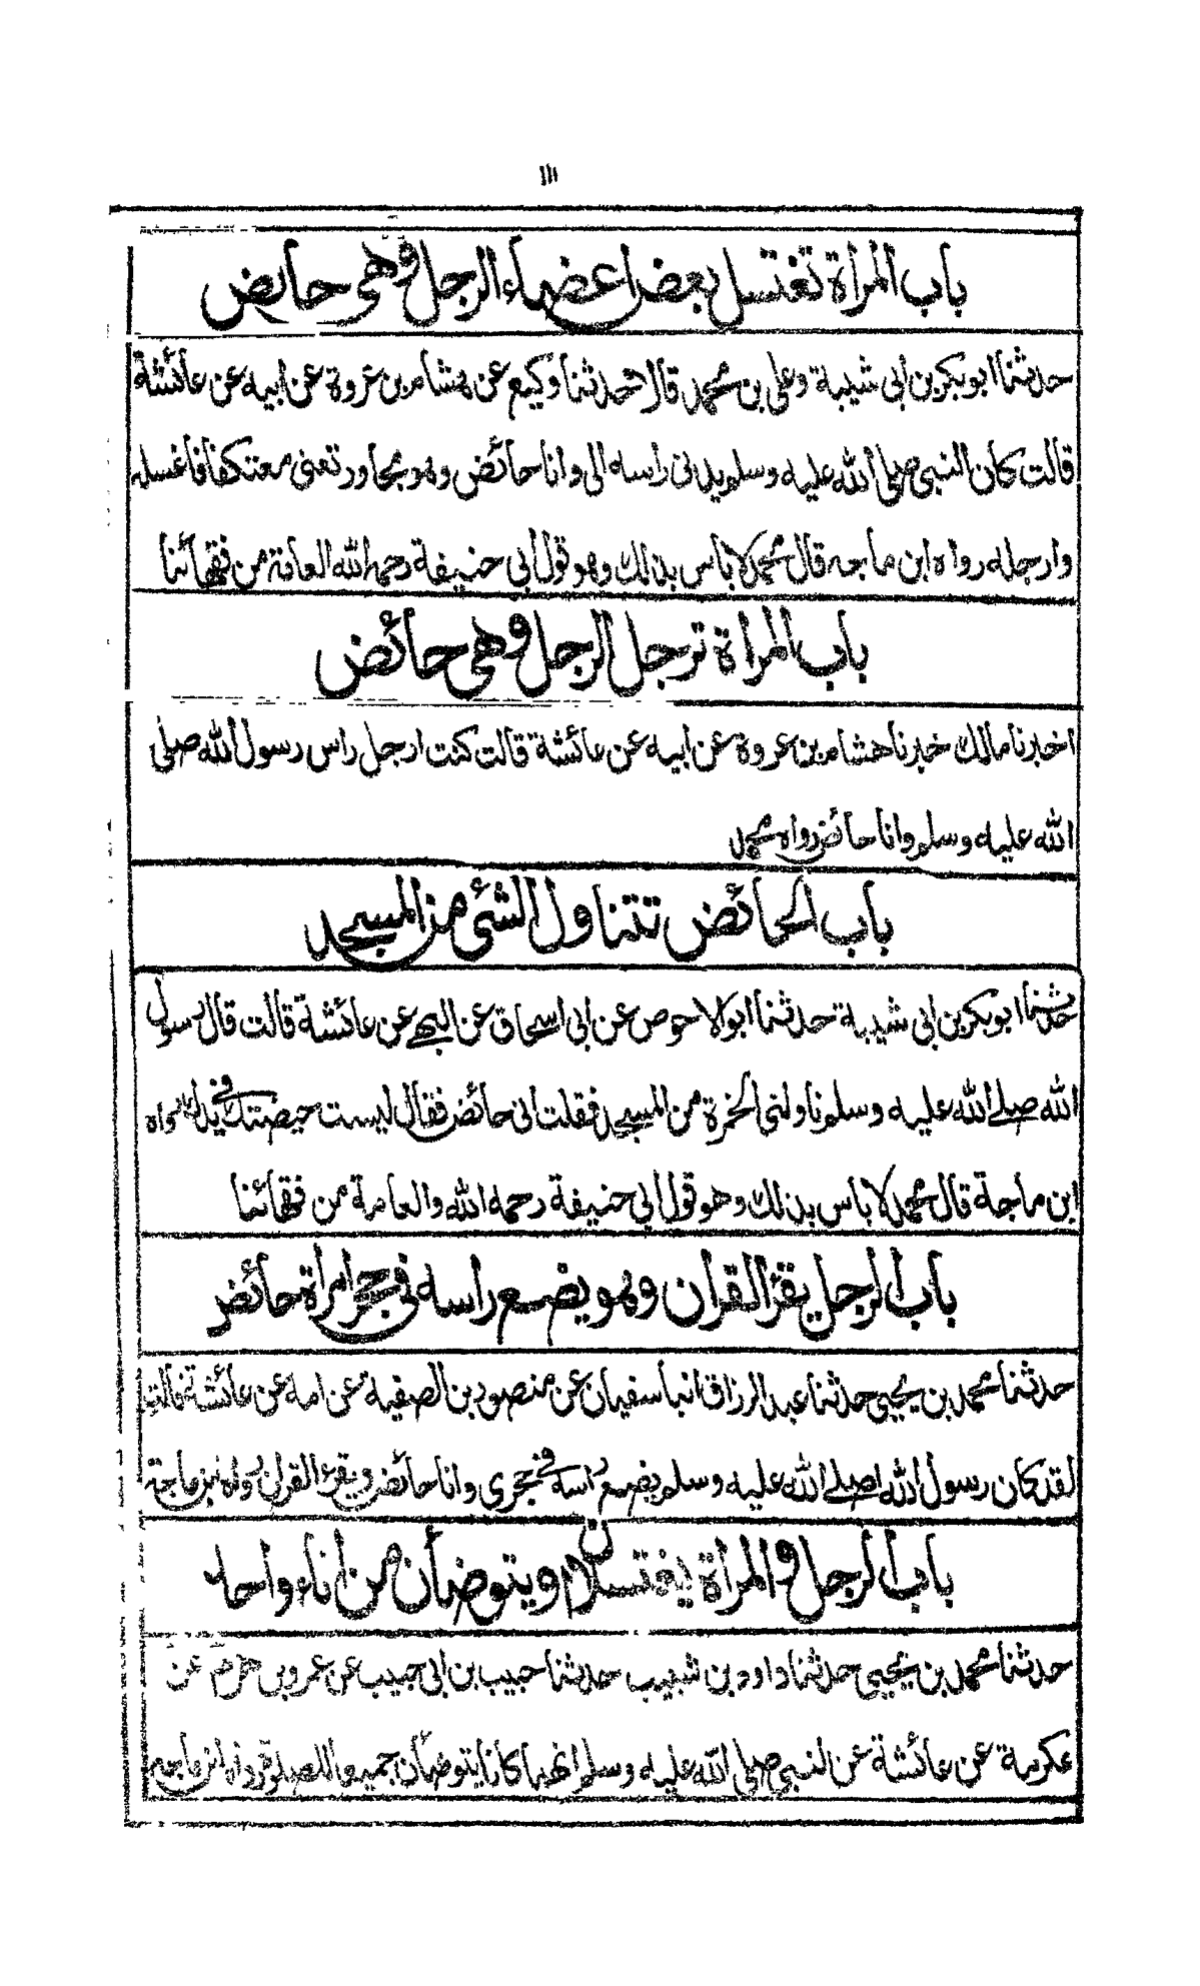 ١١١
باب المرأة تغتسل بعض اعضاء الرجل وهى حايض
حدثنا ابو بكر بن ابى شيبة وعلى بن محمد قالا حدثنا وكيع عن هشام بن عروة عن ابيه عن عائشة
قالت كان النبى صلى الله عليه وسلم يدنى راسه الى وانا حائض وهو مجاور تعنى معتكفا فاغسله
وارجله رواه ابن ماجه قال محمد لا باس بذلك وهو قول ابى حنيفة رحمه الله العامة من فقهائنا
باب المرأة ترجل الرجل وهى حائض
اخبرنا مالك خبرنا هشام بن عروة عن ابيه عن عائشة قالت كنت ارجل راس رسول الله صلى
الله عليه وسلم وانا حائض رواه محمد
باب الحائض تتناول الشئ من المسجد
حدثنا ابو بكر بن ابى شيبة حدثنا ابو الاحوص عن ابى اسحاق عن البهى عن عائشة قالت قال رسول
الله صلى الله عليه وسلم ناولنى الخمرة من المسجد فقلت انى حائض فقال ليست حيضتك فى يدك رواه
ابن ماجة قال محمد لا باس بذلك وهو قول ابى حنيفة رحمه الله والعامة من فقهائنا
باب الرجل يقرأ القران وهو يضع راسه فى حجر امرأة حائض
حدثنا محمد بن يحيى حدثنا عبد الرزاق انبأ سفيان عن منصور بن الصفية عن امه عن عائشة قالت
لقد كان رسول الله صلى الله عليه وسلم يضع راسه فى حجرى وانا حائض ويقرء القران رواه ابن ماجة
باب الرجل والمرأة يغتسلان او يتوضأن من اناء واحد
حدثنا محمد بن يحيى حدثنا داود بن شبيب حدثنا حبيب بن ابى حبيب عن عمرو بن هرم عن
عكرمة عن عائشة عن النبى صلى الله عليه وسلم انهما كانا يتوضأن جميعا للصلوة رواه ابن ماجه